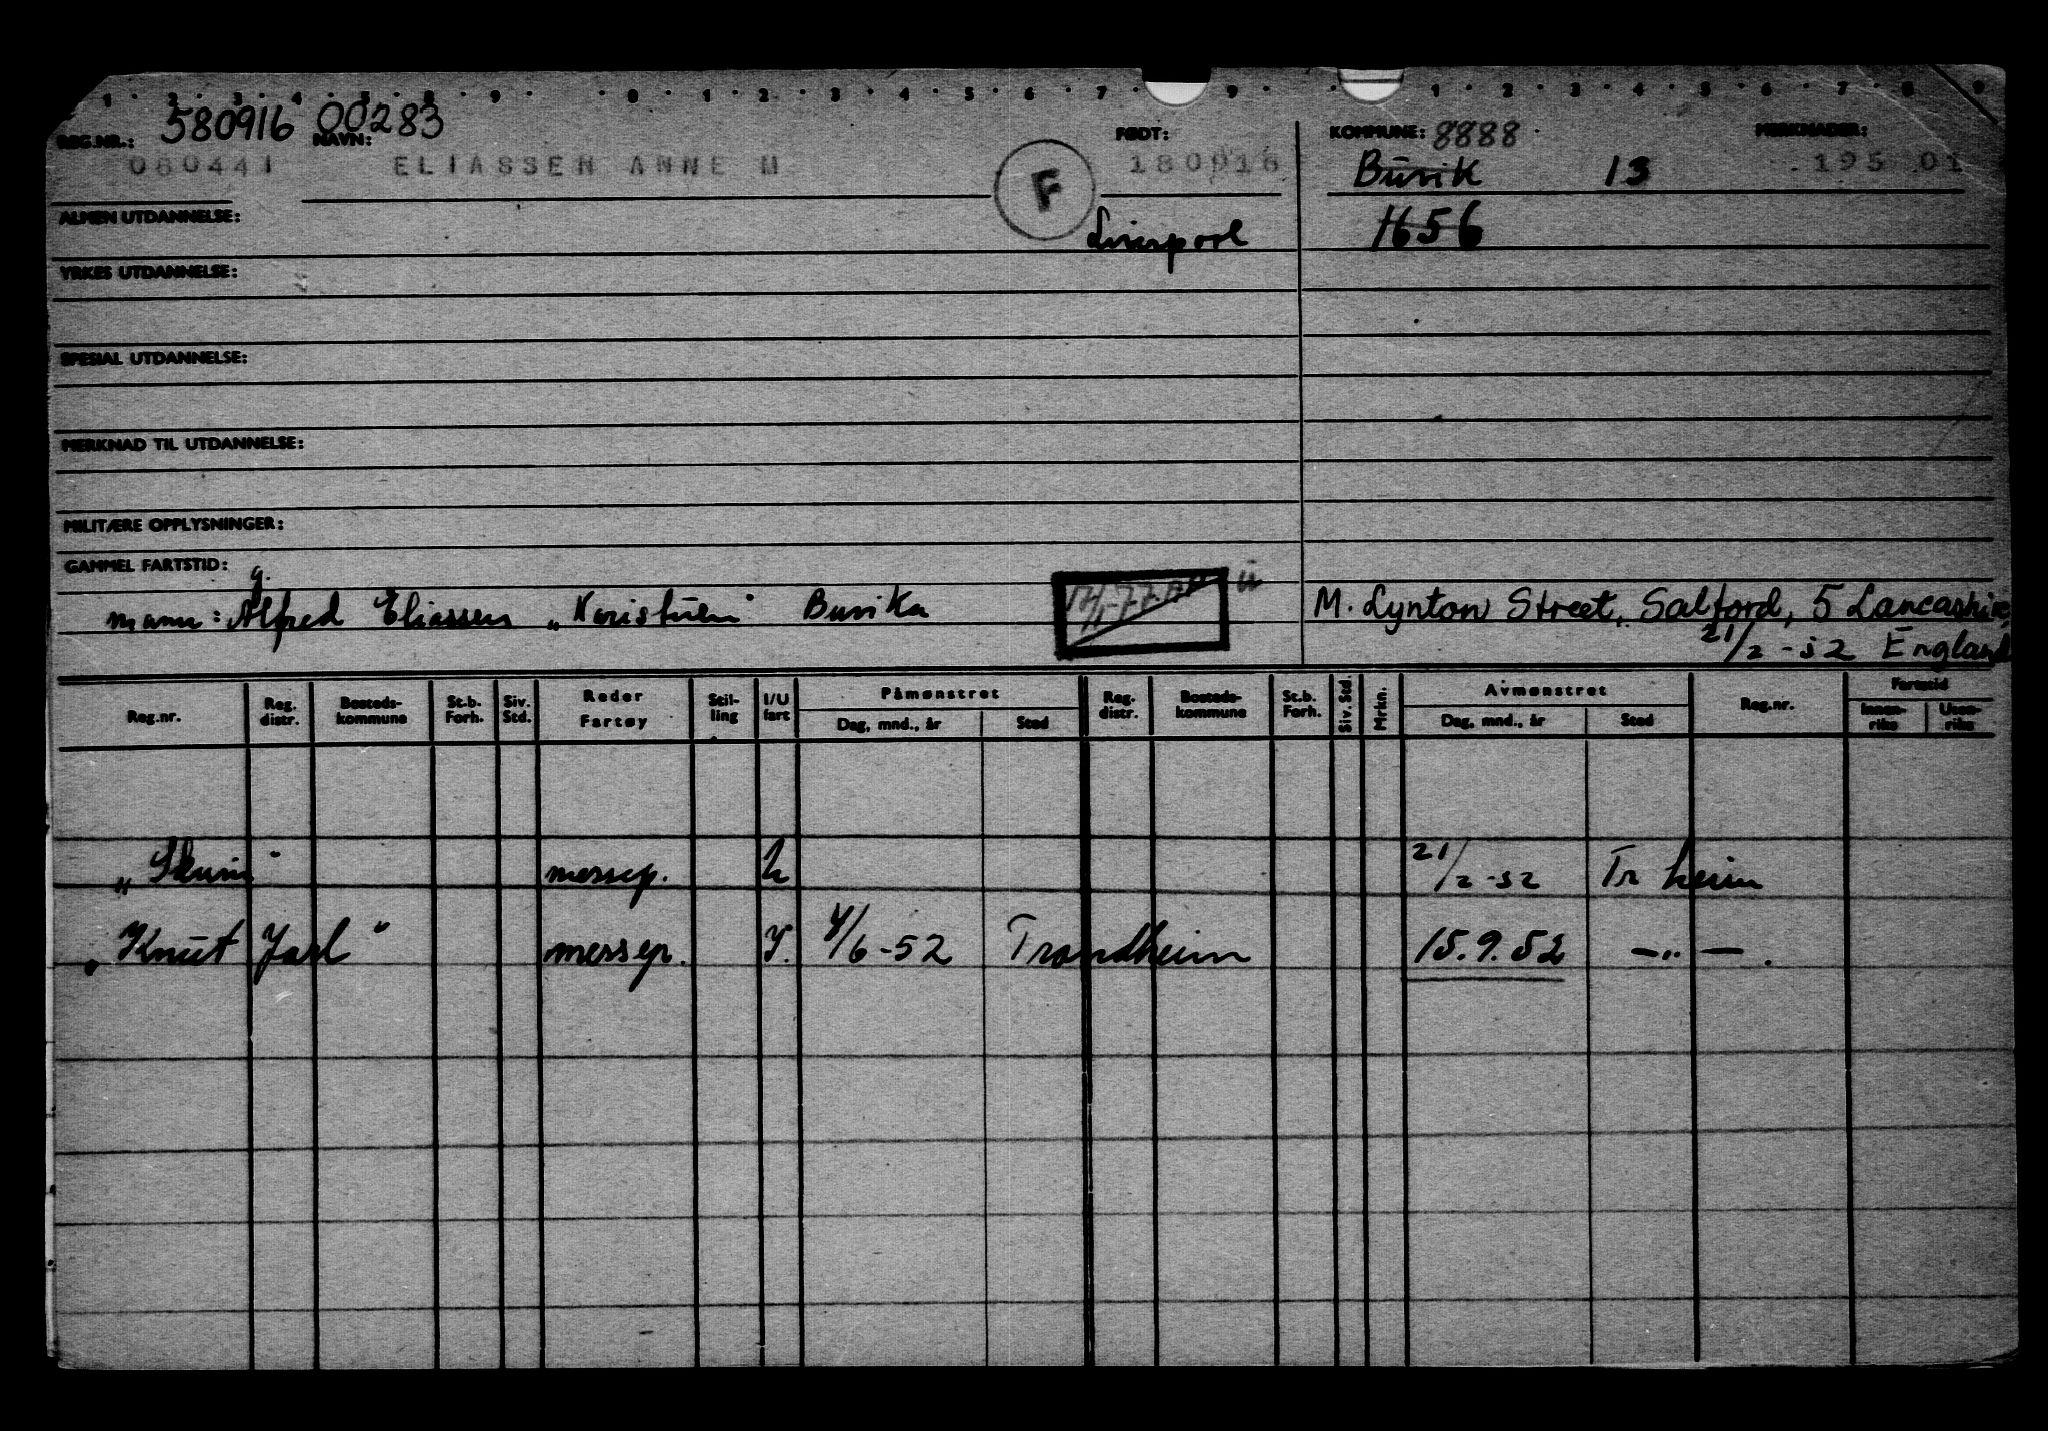 1 2 3 4 5 8 9 0 1 2 3 4 5 6 7 9 1 2 3 4 5 6 7 8 9
REG.NR.: 580916 00283 NAVN: FØDT: KOMMUNE: 8888 MERKNADER:
080441 ELIASSEN ANNE M F 180916 Buvik 13 195 01
ALMEN UTDANNELSE: Liverpool 1656
YRKES UTDANNELSE:
SPESIAL UTDANNELSE:
MERKNAD TIL UTDANNELSE:
MILITÆRE OPPLYSNINGER:
GAMMEL FARTSTID:
g.
mann: Alfred Eliassen Buvika M. Lynton Street, Salford, 5 Lancashire,
21/2-52 England
Reg.nr. Reg. distr. Bosteds-kommune St.b. Forh. Siv. Std. Reder Fartøy Stil-ling I/U fart Påmønstret Dag, mnd., år Sted Reg. distr. Bosteds-kommune St.b. Forh. Siv. Std. Mrkn. Avmønstret Dag, mnd., år Sted Reg.nr. Fartstid Innen-riks Uten-riks
messep. 21/2-52 Tr heim
"Knut Jarl" messep. 4/6-52 Trondheim 15.9.52 —"—.